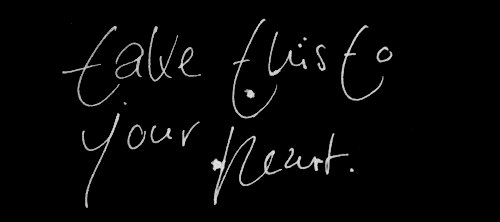 take this to
your heart.